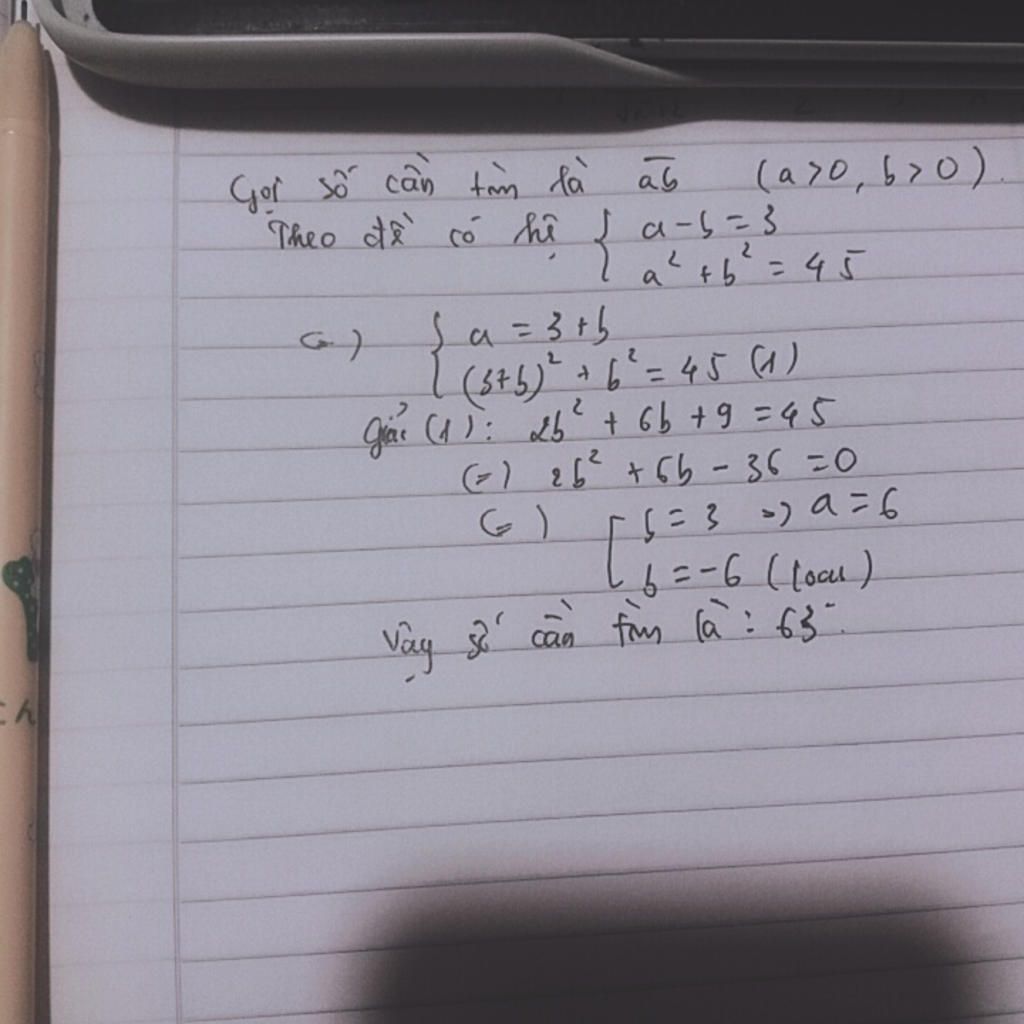 Gọi số cần tìm là ab̅ (a>0, b>0).
Theo đề có hệ { a - b = 3
a² + b² = 45
(=) { a = 3 + b
(3+b)² + b² = 45 (1)
giải (1): 2b² + 6b + 9 = 45
(=) 2b² + 6b - 36 = 0
(=) [ b = 3 => a = 6
b = -6 (loại)
Vậy số cần tìm là: 63.